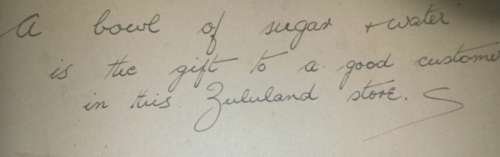 A bowl of sugar + water
is the gift to a good custome
in this Zululand store.